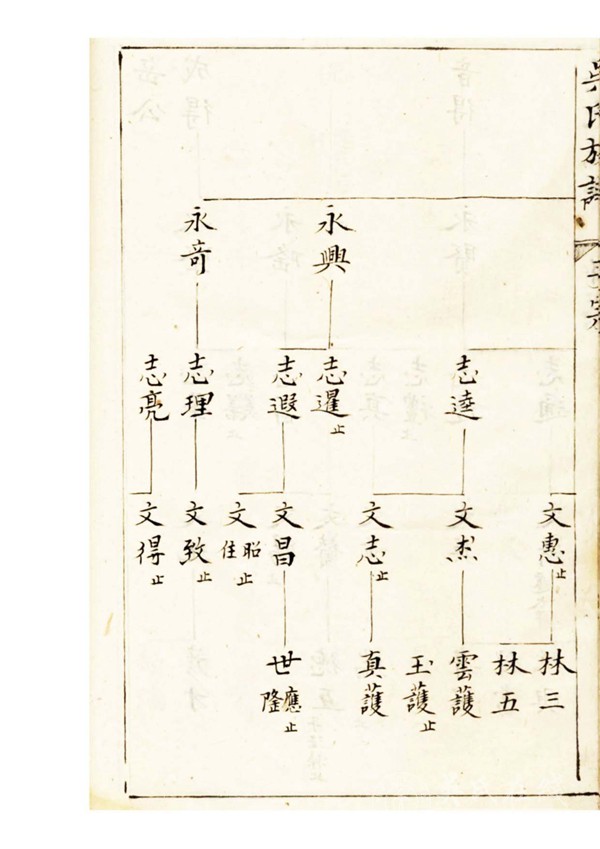 吳氏族譜
永興
永奇
志逵
志暹止
志遐
志理
志亮
文惠止
文杰
文志止
文昌
文昭住止
文致止
文得止
林三
林五
雲護
玉護止
真護
世應隆止